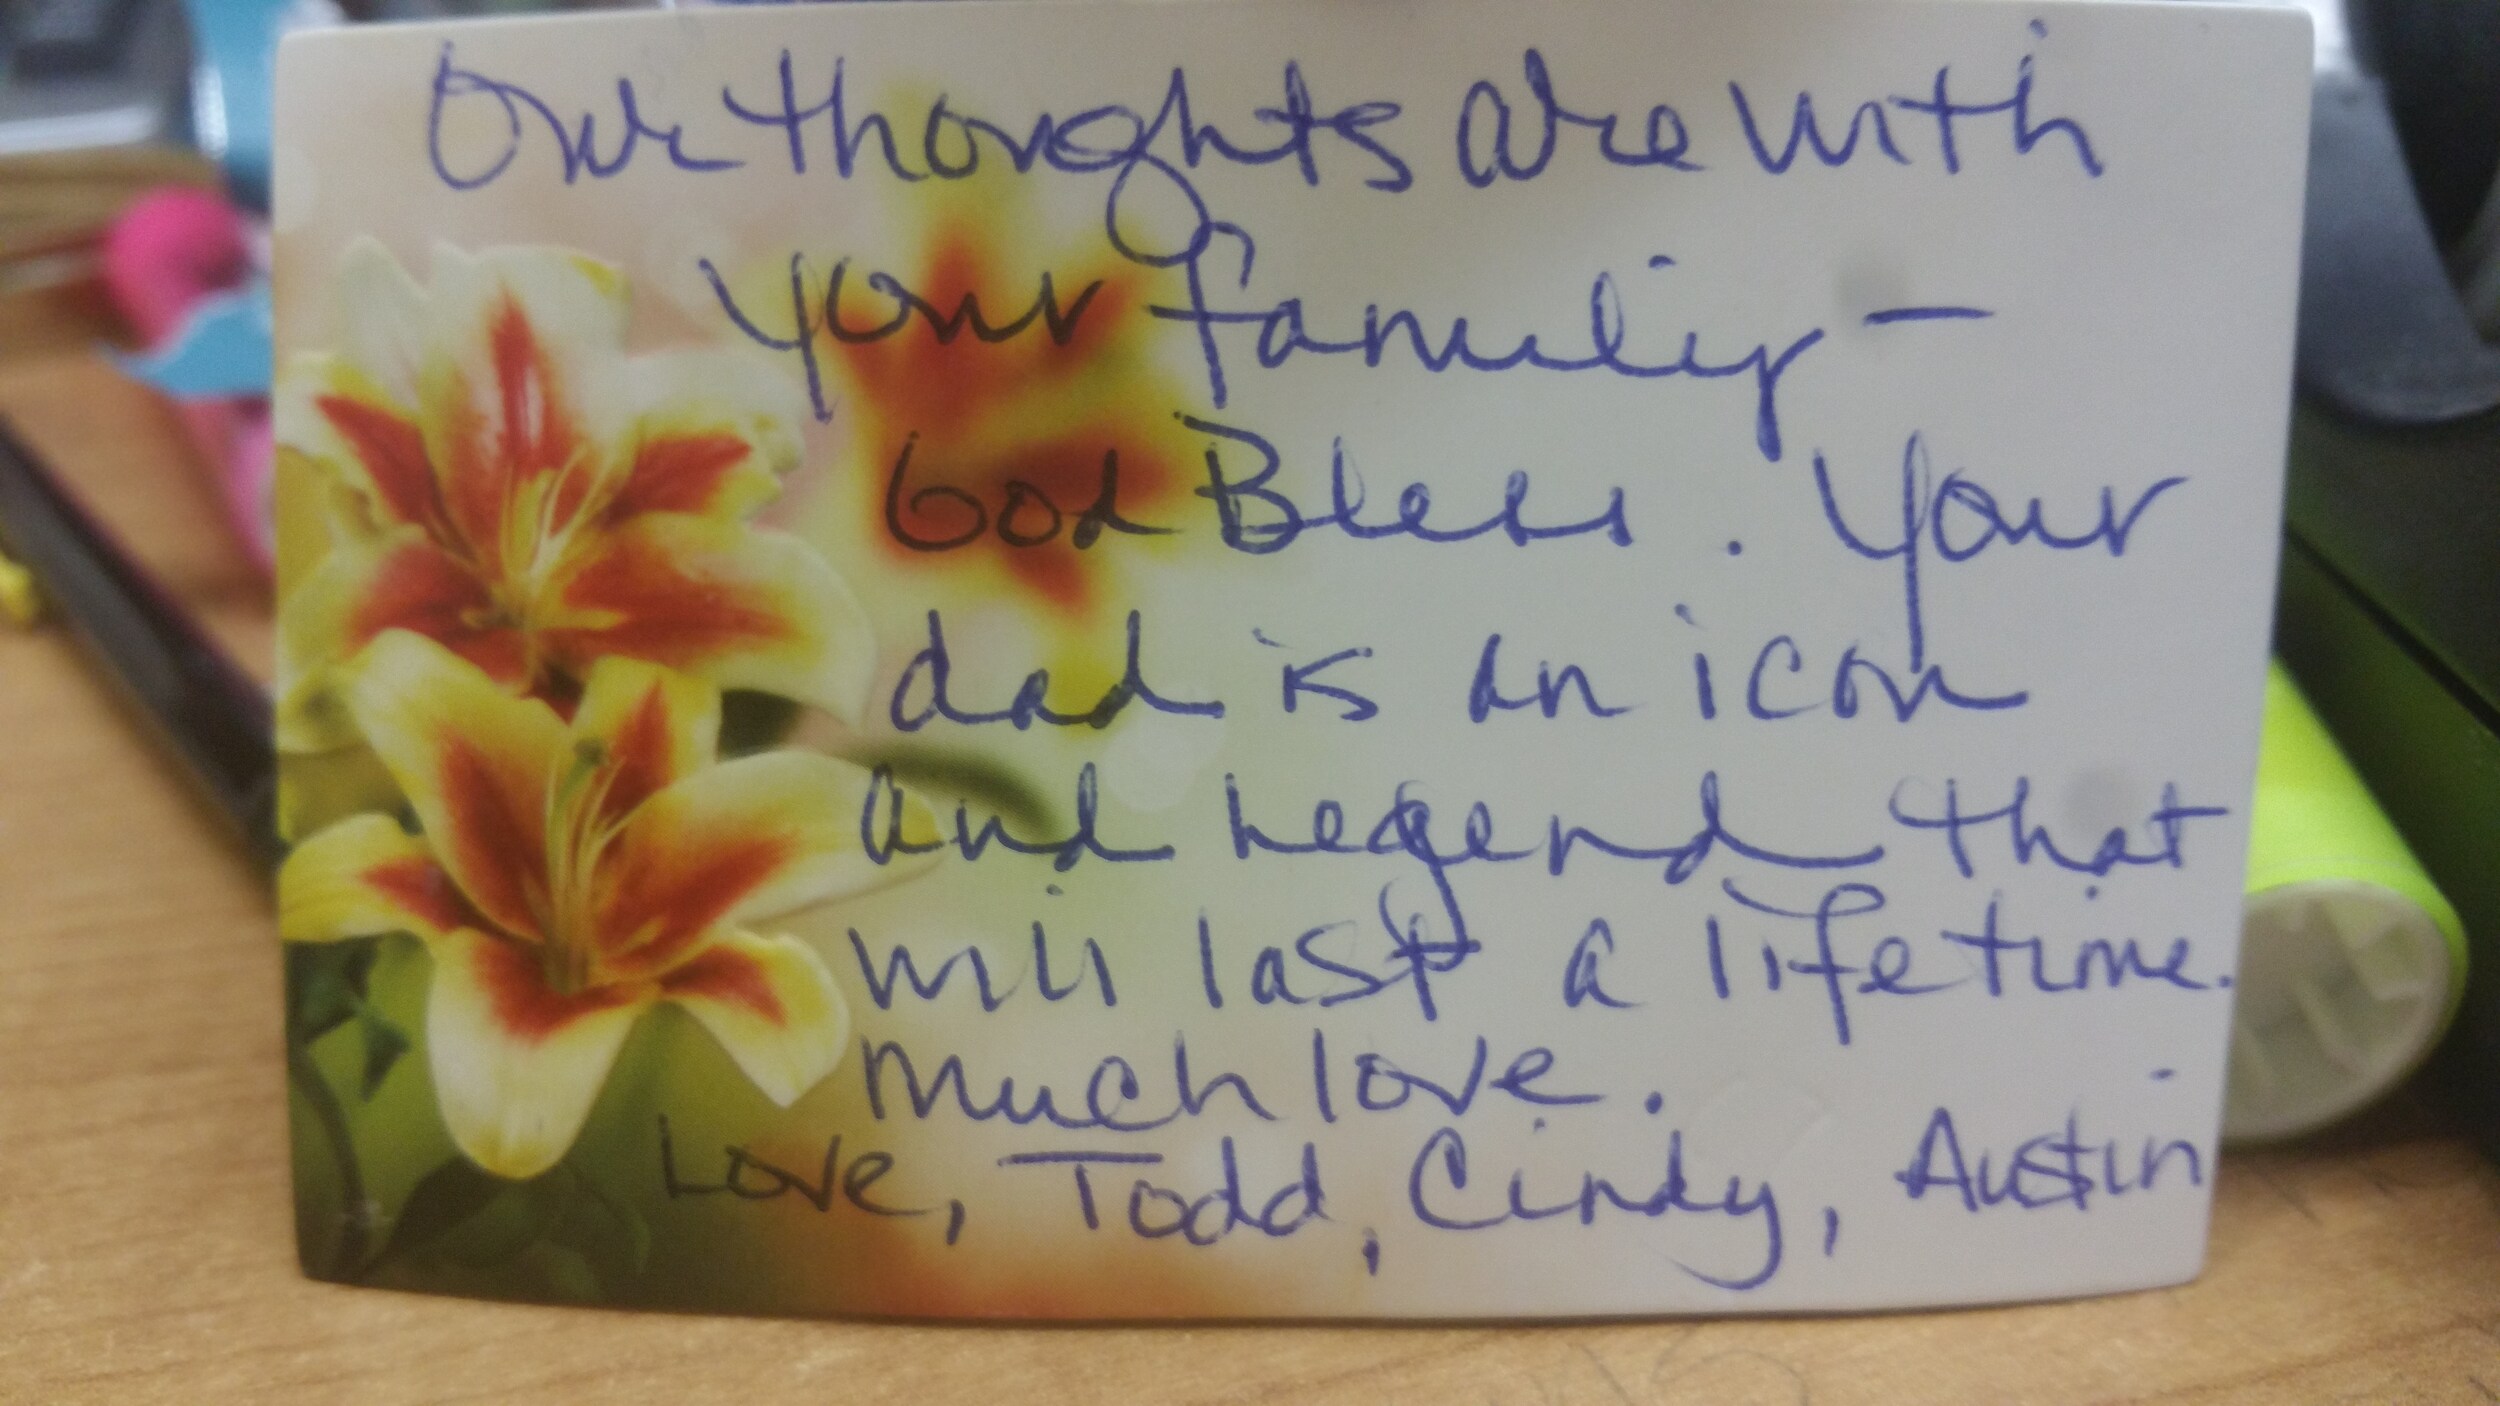 Our thoughts are with
your family -
God Bless. Your
dad is an icon
and legend that
will last a lifetime.
Much love.
Love, Todd, Cindy, Austin